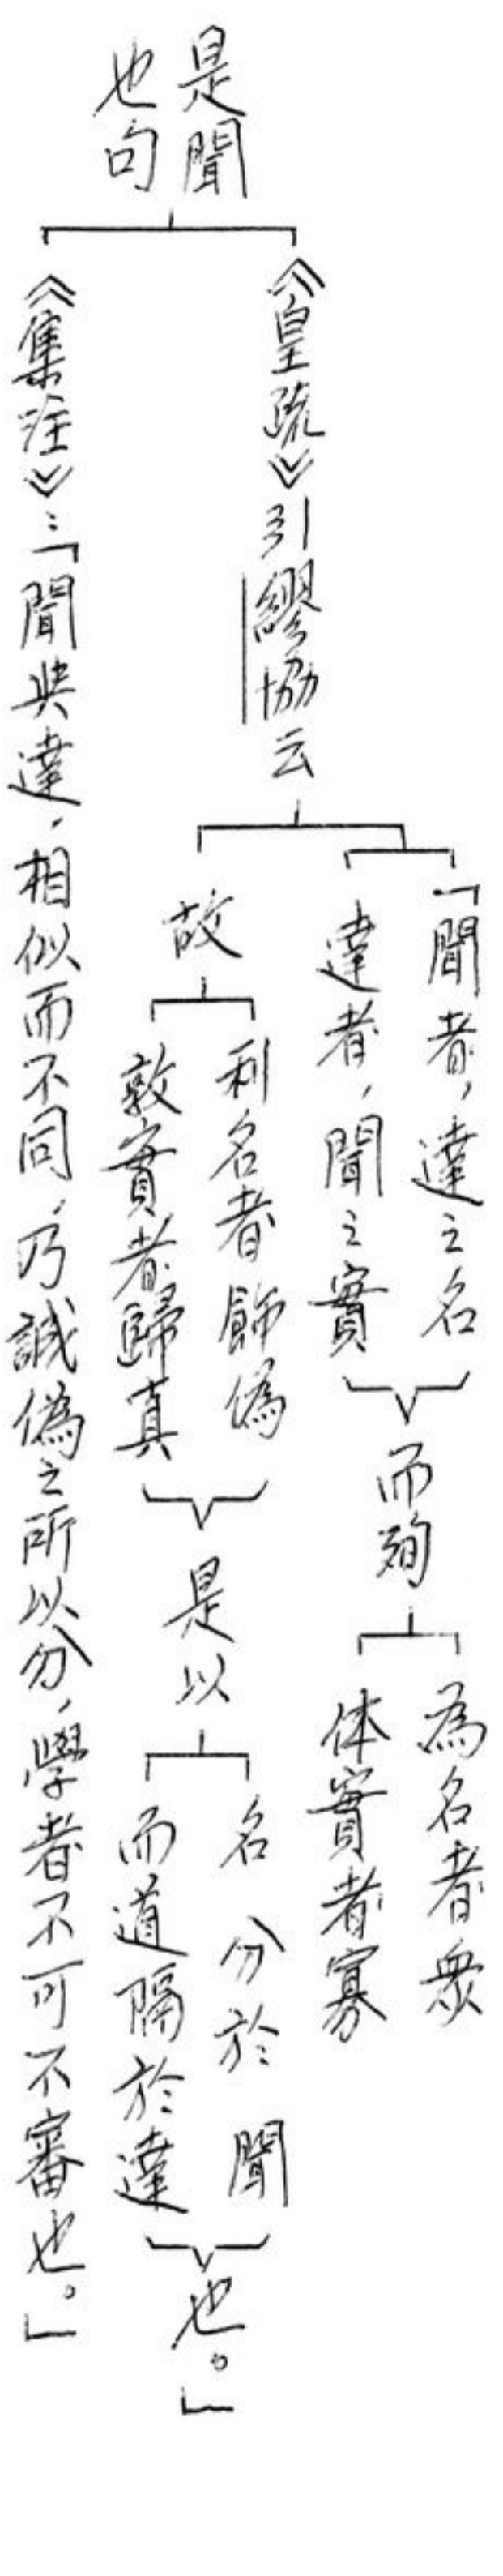 是聞
也句
《皇疏》引繆協云
「聞者，達之名
達者，聞之實
而殉
為名者眾
体實者寡
故
利名者飾偽
敦實者歸真
是以
名分於聞
而道隔於達
也。」
《集注》：「聞與達，相似而不同，乃誠偽之所以分，學者不可不審也。」